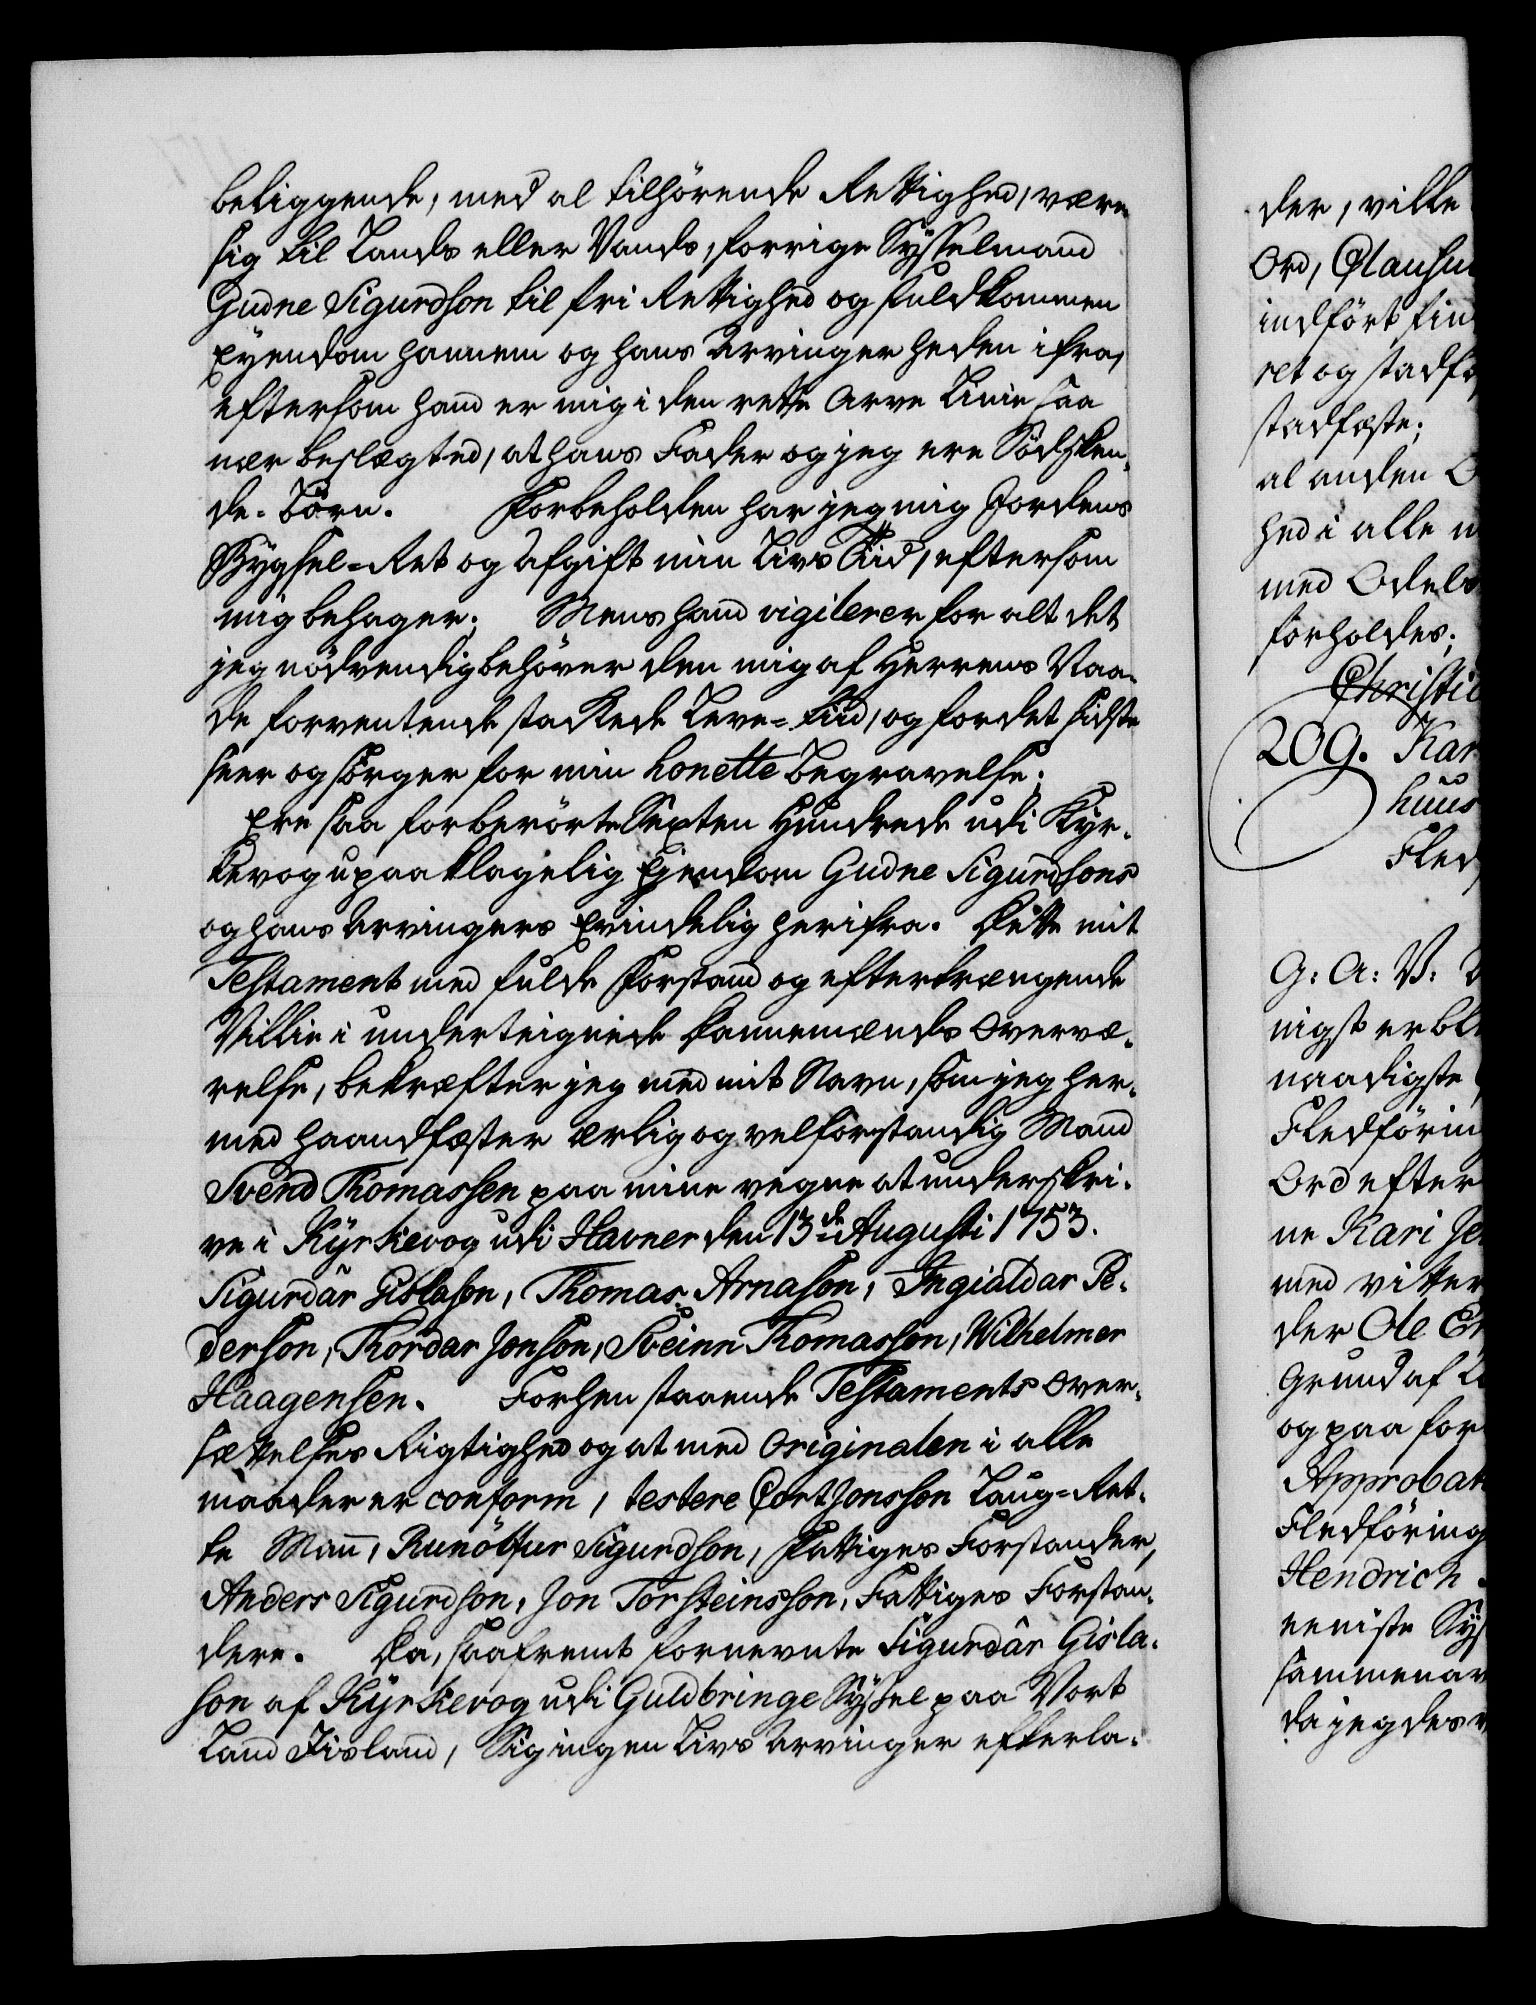 beliggende, med al tilhörende Rettighed, være
sig til Lands eller Vands, forrige Sysselmand
Gudne Sigurdson til fri Rettighed og fuldkommen
Eyendom hannem og hans Arvinger heden ifra,
eftersom hand er mig i den rette Arve Linie saa
nær beslægted, at hans Fader og jeg ere Södsken-
de-Börn. Forbeholden har jeg mig Jordens
Bygsel-Ret og Afgift min Livs Tiid, eftersom
mig behager; Mens hand vigilerer for alt det
jeg nödvendig behöver den mig af Herrens Naa-
de forventende stackede Leve-Tiid, og for det sidste
seer og sörger for min honette Begravelse;
Ere saa forberörte Sexten Hundrede udi Kyr-
kevog upaaklagelig Ejendom Gudne Sigurdsons
og hans Arvingers Evindelig herifra. Dette mit
Testament med fulde Forstand og eftertrængende
Villie i underteignede Dannemænds Overvæ-
relse, bekræfter jeg med mit Navn, som jeg her-
med haandfæster ærlig og velforstandig Mand
Svend Thomassen paa mine vegne at underskri-
ve i Kyrkevog udi Havner den 13de Augusti 1753.
Sigurdâr Gislason, Thomas Arnason, Ingialdar Pe-
derson, Thordar Jonson, Sveinn Thomasson, Wilhelmer
Haagensen. Forhen staaende Testaments Over-
sættelses Rigtighed og at med Originalen i alle
maader er conform, testere Cort Jonsson Laug-Ret-
te Mañ, Runölfur Sigurdson, Fattiges Forstander,
Anders Sigurdson, Jon Torsteinsson, Fattiges Forstan-
dere. Da, saafremt fornevnte Sigurdâr Gisla-
son af Kyrkevog udi Guldbringe Syssel paa Vort
Land Iisland, Sig ingen Livs Arvinger efterla-
der, ville
Ord, Clausu
indfört fin
ret og stadfæ
stadfæste;
al anden
hed i alle
med Odels
forholdes;
Christi
209. Kar
huus
Fled
G: A: V:
nigst er ble
naadigste
Fledföring
Ord efter
ne Kari Je
med vitter
der Ole Er
Grund af
og paa for
Approbat
Fledföring
Hendrich
eeniste Sy
sammenav
da jeg des